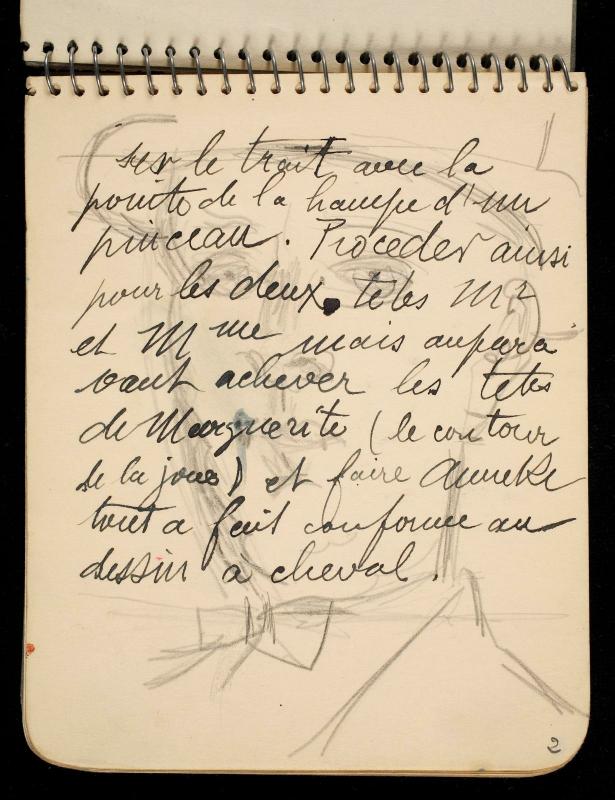 sur le trait avec la
pointe de la hampe d'un
pinceau. Proceder ainsi
pour les deux têtes Mr
et Mme mais aupara
vant achever les tetes
de Marguerite (le contour
de la joue) et faire Anneke
tout a fait conforme au
dessin à cheval.
2